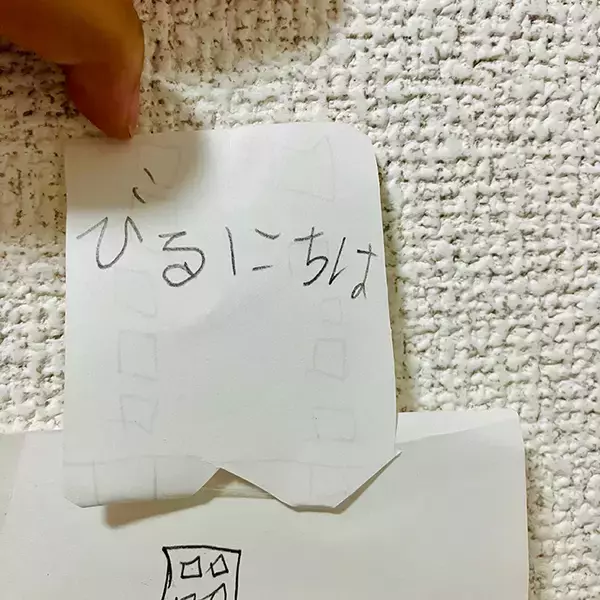 びるにちは